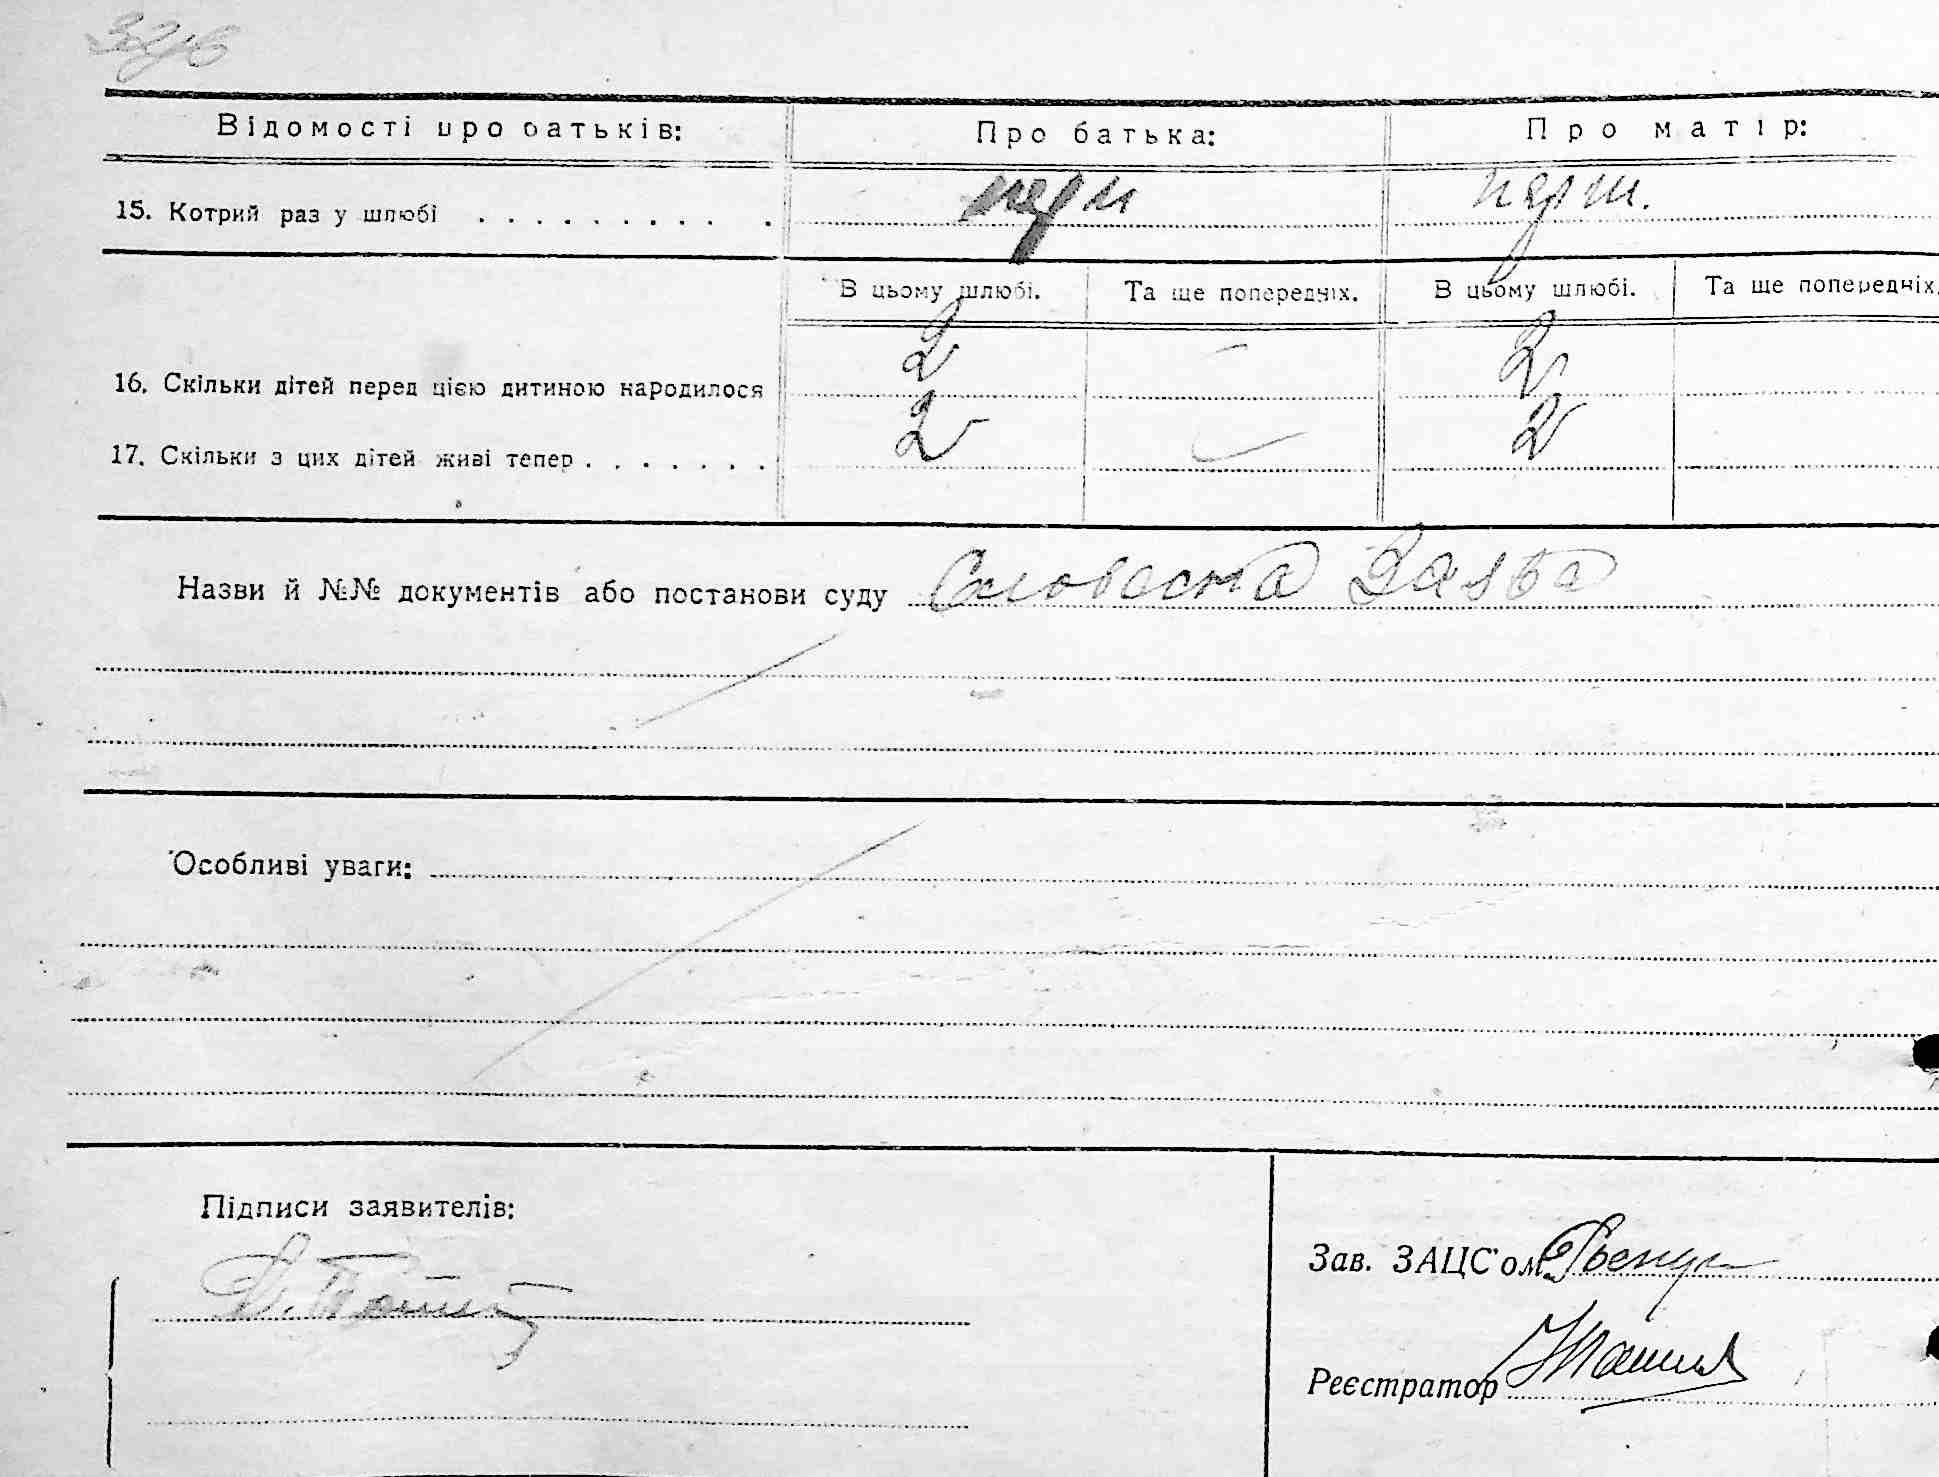 Відомості про батьків: Про батька: Про матір:
15. Котрий раз у шлюбі . . . . . . . . . . перш перш.
В цьому шлюбі. Та ще попередніх. В цьому шлюбі. Та ще попередніх.
16. Скільки дітей перед цією дитиною народилося 2 — 2
17. Скільки з цих дітей живі тепер . . . . . . . 2 2
Назви й №№ документів або постанови суду Словесна Заява
Особливі уваги:
Підписи заявителів:
Зав. ЗАЦС'ом
Реєстратор